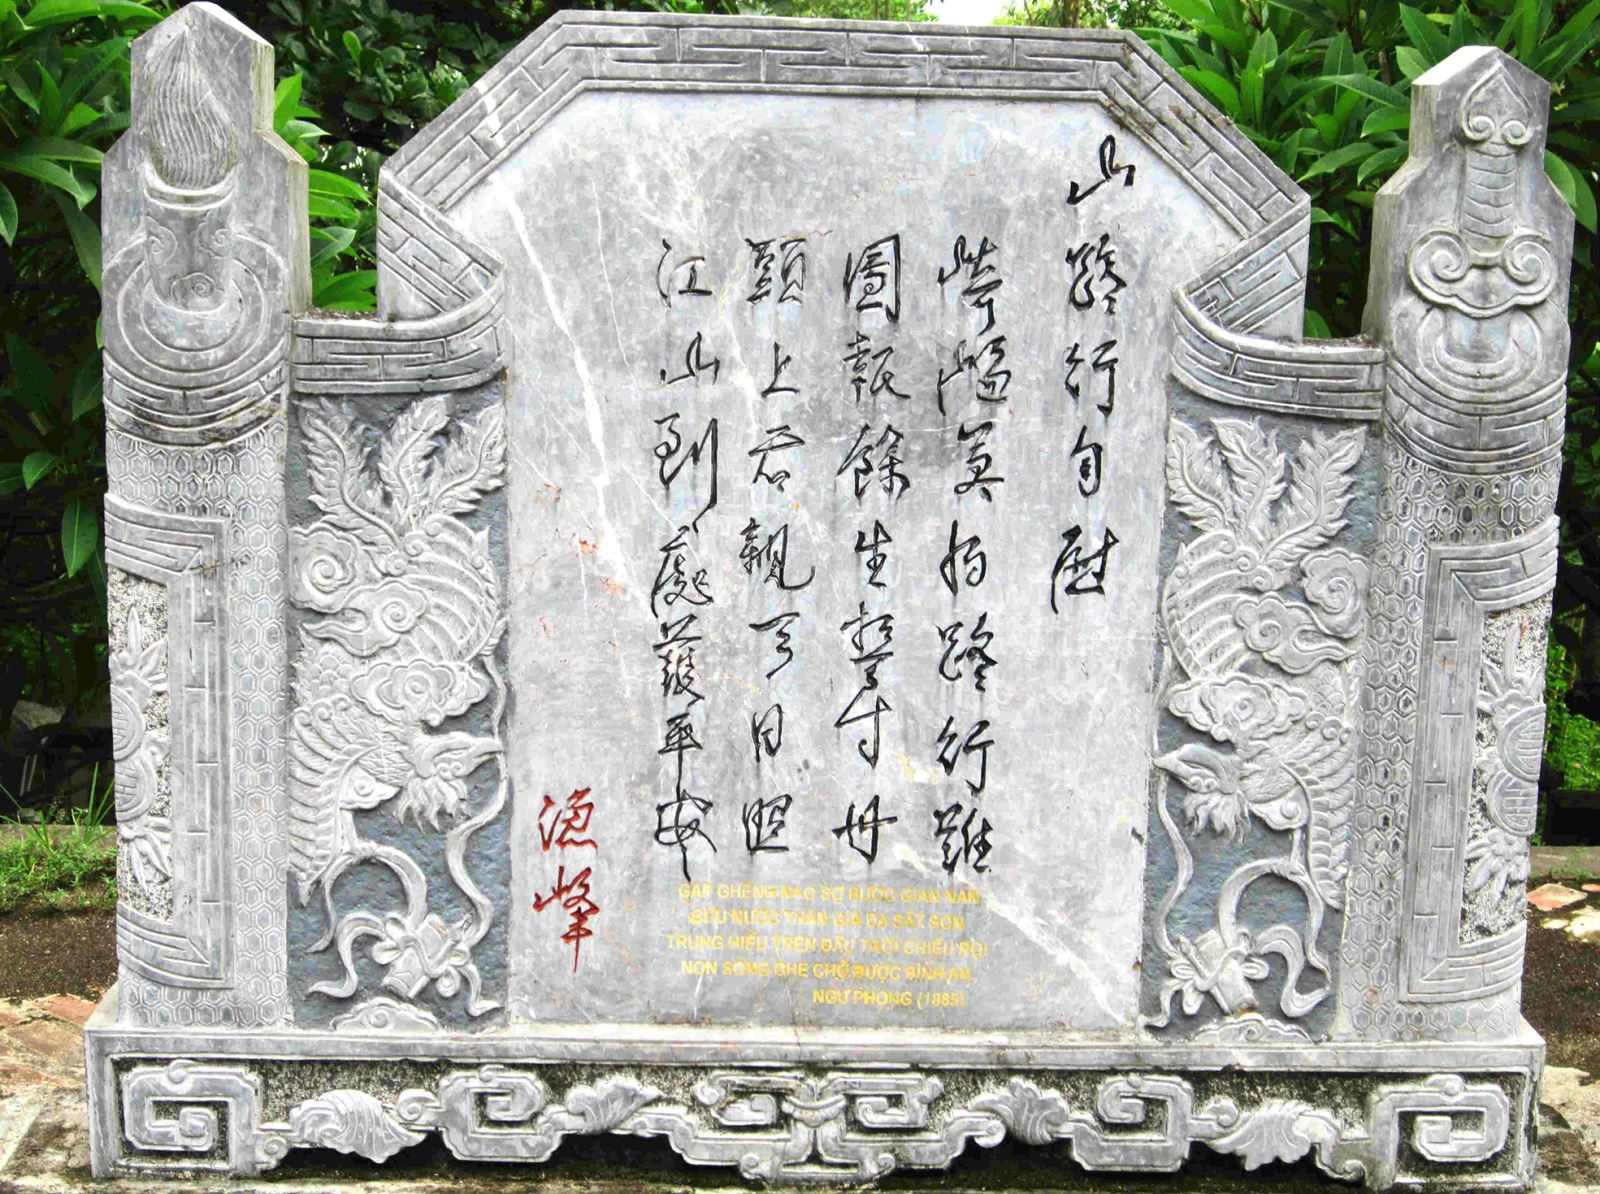 山路行自慰
崎嶇莫怕路行難
圖報餘生誓寸丹
頭上君親天日照
江山到處獲平安
漁峰
GẬP GHỀNH NÀO SỢ BƯỚC GIAN NAN
CỨU NƯỚC THÂN GIÀ DẠ SẮT SON
TRUNG HIẾU TRÊN ĐẦU TRỜI CHIẾU RỌI
NON SÔNG GHE CHỖ ĐƯỢC BÌNH AN
NGƯ PHONG (1885)